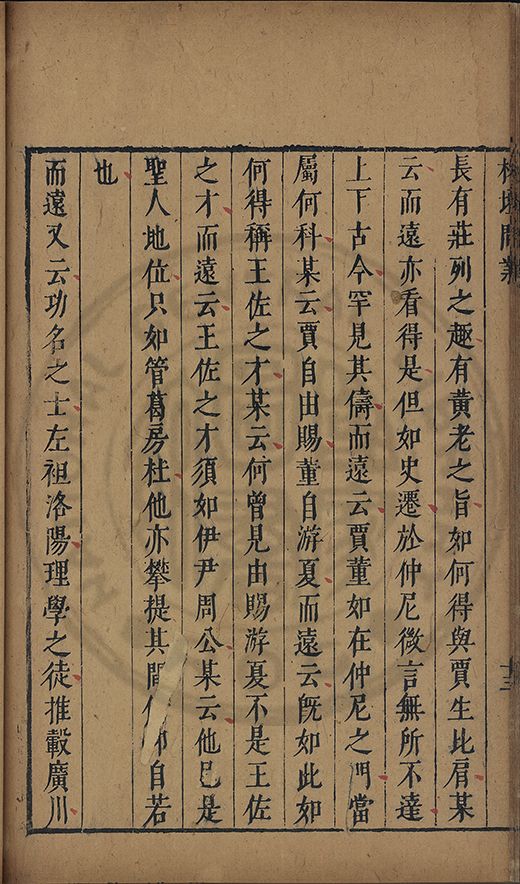 問
十三
長有莊列之趣有黃老之旨如何得與賈生比肩某
云而遠亦看得是但如史遷於仲尼微言無所不達
上下古今罕見其儔而遠云賈董如在仲尼之門當
屬何科某云賈自由賜董自游夏而遠云旣如此如
何得稱王佐之才某云何曾見由賜游夏不是王佐
之才而遠云王佐之才須如伊尹周公某云他已是
聖人地位只如管葛房杜他亦攀提其間自若
也
而遠又云功名之士左袒洛陽理學之徒推轂廣川